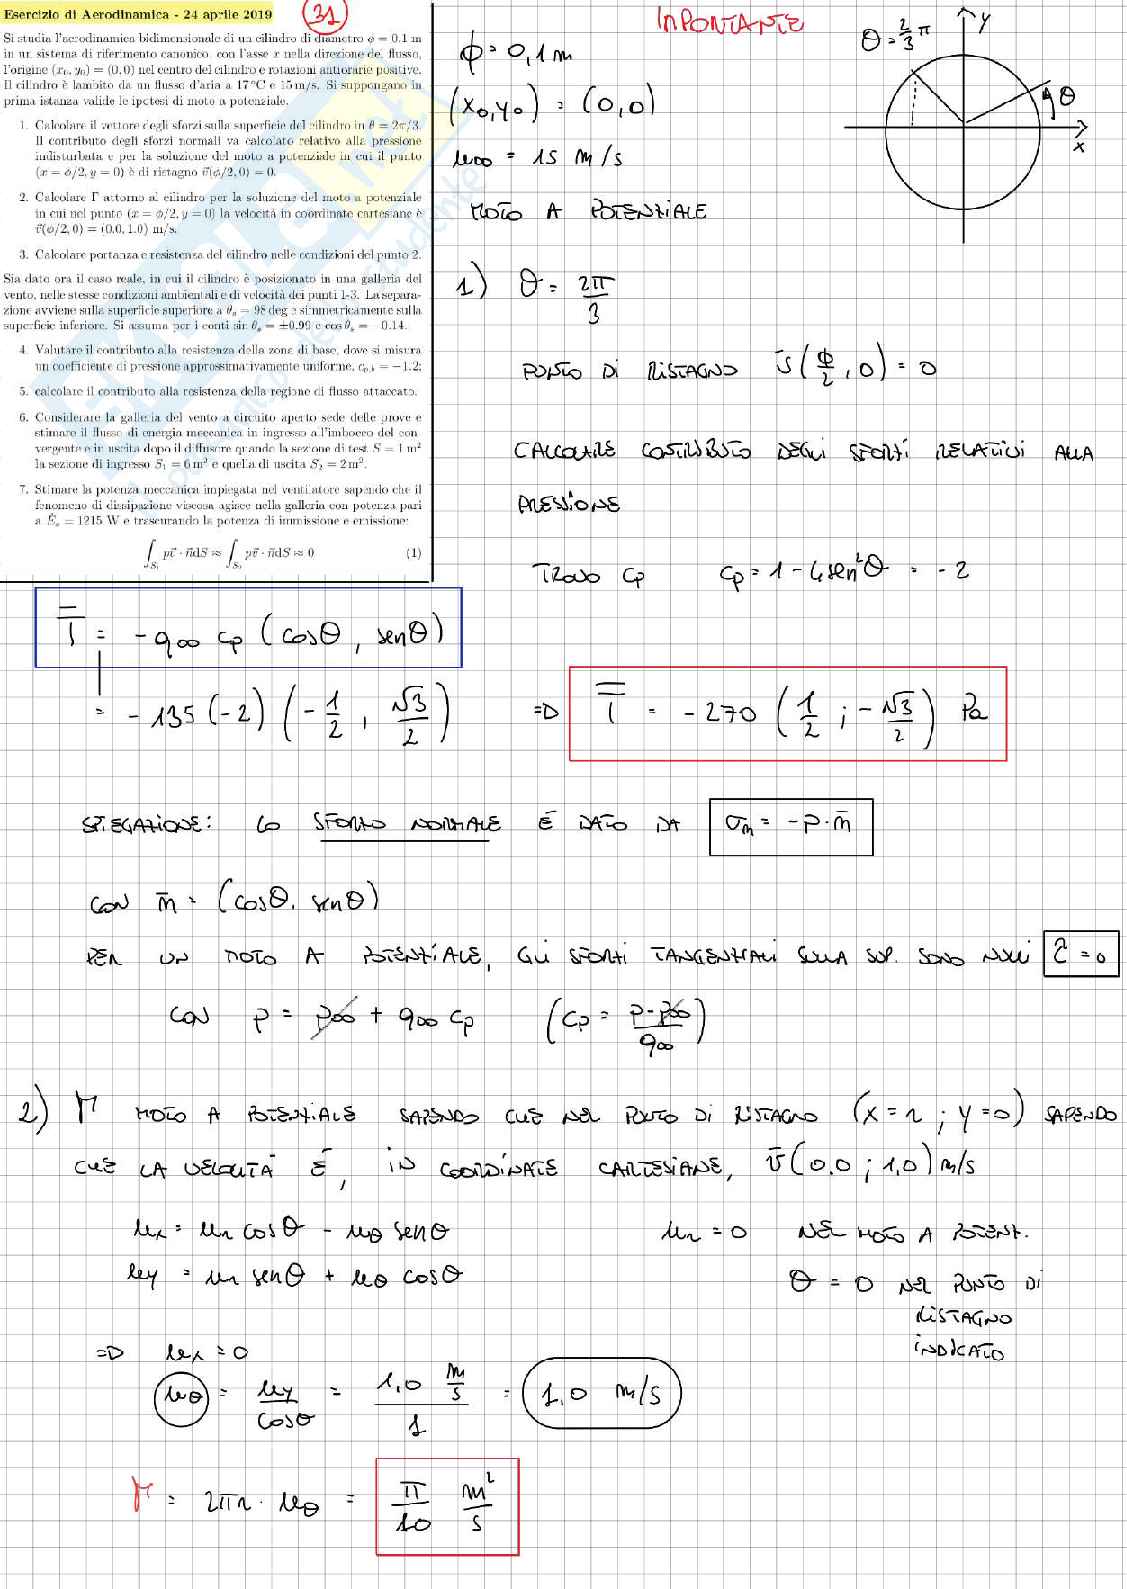 Esercizio di Aerodinamica - 24 aprile 2019
31
Si studia l'aerodinamica bidimensionale di un cilindro di diametro ϕ = 0.1 m
in un sistema di riferimento canonico, con l'asse x nella direzione del flusso,
l'origine (x₀, y₀) = (0, 0) nel centro del cilindro e rotazioni antiorarie positive.
Il cilindro è lambito da un flusso d'aria a 17 °C e 15 m/s. Si suppongano in
prima istanza valide le ipotesi di moto a potenziale.
1. Calcolare il vettore degli sforzi sulla superficie del cilindro in θ = 2π/3.
Il contributo degli sforzi normali va calcolato relativo alla pressione
indisturbata e per la soluzione del moto a potenziale in cui il punto
(x = ϕ/2, y = 0) è di ristagno v⃗(ϕ/2, 0) = 0.
2. Calcolare Γ attorno al cilindro per la soluzione del moto a potenziale
in cui nel punto (x = ϕ/2, y = 0) la velocità in coordinate cartesiane è
v⃗(ϕ/2, 0) = (0.0, 1.0) m/s.
3. Calcolare portanza e resistenza del cilindro nelle condizioni del punto 2.
Sia dato ora il caso reale, in cui il cilindro è posizionato in una galleria del
vento, nelle stesse condizioni ambientali e di velocità dei punti 1-3. La separa-
zione avviene sulla superficie superiore a θₛ = 98 deg e simmetricamente sulla
superficie inferiore. Si assuma per i conti sin θₛ = ±0.99 e cos θₛ = −0.14.
4. Valutare il contributo alla resistenza della zona di base, dove si misura
un coefficiente di pressione approssimativamente uniforme, c_{p,b} = −1.2;
5. calcolare il contributo alla resistenza della regione di flusso attaccato.
6. Considerare la galleria del vento a circuito aperto sede delle prove e
stimare il flusso di energia meccanica in ingresso all'imbocco del con-
vergente e in uscita dopo il diffusore quando la sezione di test S = 1 m²
la sezione di ingresso S₁ = 6 m² e quella di uscita S₂ = 2 m².
7. Stimare la potenza meccanica impiegata nel ventilatore sapendo che il
fenomeno di dissipazione viscosa agisce nella galleria con potenza pari
a Ėᵥ = 1215 W e trascurando la potenza di immissione e emissione:
∫_{S₁} pv⃗ · n⃗dS ≈ ∫_{S₂} pv⃗ · n⃗dS ≈ 0 (1)
IMPORTANTE
ϕ = 0,1 m
(x₀,y₀) = (0,0)
u∞ = 15 m/s
MOTO A POTENZIALE
θ = 2/3 π
y
θ
x
1) θ = 2π/3
PUNTO DI RISTAGNO v̄(ϕ/2, 0) = 0
CALCOLARE CONTRIBUTO DEGLI SFORZI RELATIVI ALLA
PRESSIONE
TROVO cp cp = 1 - 4 sen²θ = -2
T̿ = - q∞ cp (cosθ, senθ)
= - 135 (-2) (-1/2, √3/2) => T̿ = - 270 (1/2 ; -√3/2) Pa
SPIEGAZIONE: LO SFORZO NORMALE È DATO DA σn = -p·n̄
CON n̄ = (cosθ, senθ)
PER UN MOTO A POTENZIALE, GLI SFORZI TANGENZIALI SULLA SUP. SONO NULLI τ̄ = 0
CON p = p∞ + q∞ cp (cp = (p-p∞)/q∞)
2) Γ MOTO A POTENZIALE SAPENDO CHE NEL PUNTO DI RISTAGNO (x = r ; y = 0) SAPENDO
CHE LA VELOCITÀ È, IN COORDINATE CARTESIANE, v̄(0,0 ; 1,0) m/s
ux = ur cosθ - uθ senθ ur = 0 NEL MOTO A POTENZ.
uy = ur senθ + uθ cosθ θ = 0 NEL PUNTO DI
RISTAGNO
INDICATO
=> ux = 0
uθ = uy/cosθ = 1,0 m/s / 1 = 1,0 m/s
Γ = 2πr · uθ = π/10 m²/s